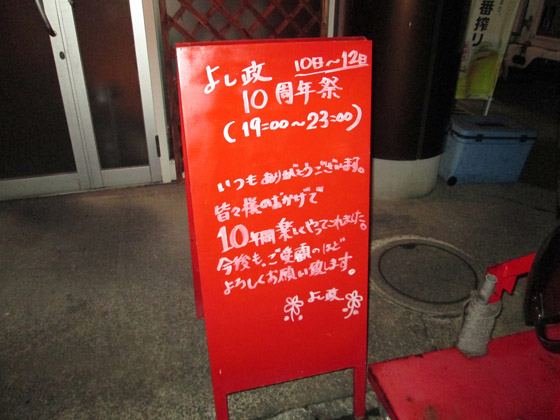 よし政 10日～12日
10周年祭
(19:00～23:00)
いつもありがとうございます。
皆々様のおかげで
10年間楽しくやってこれました。
今後も、ご愛顧のほど
よろしくお願い致します。
よし政
番搾り